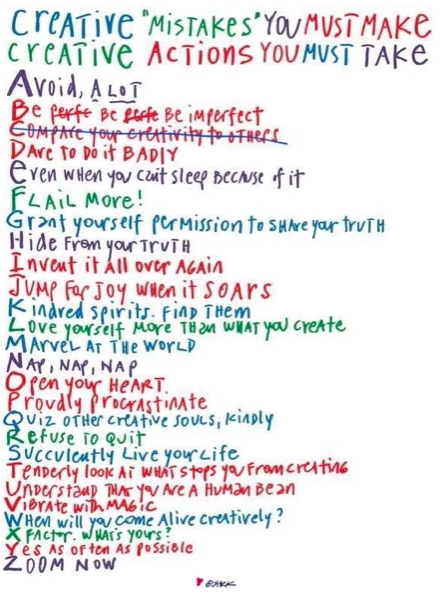 CREATIVE "MISTAKES" YOU MUST MAKE
CREATIVE ACTIONS YOU MUST TAKE
Avoid, A LOT
Be perfe Be perfe Be imperfect
COMPARE your creativity to others
DARE TO DO it BADLY
Even when you can't sleep BECAUSE of it
FLAIL MORE!
Grant yourself permission to SHARE your TRUTH
Hide From your TRUTH
Invent it All over AGAIN
JUMP for JOY when it SOARS
Kindred Spirits. FIND THEM
Love yourself More THAN WHAT you CREATE
MARVEL AT THE WORLD
NAP, NAP, NAP
Open your HEART.
Proudly Procrastinate
QUIZ OTHER creative souls, Kindly
Refuse TO QUIT
Succulently Live your Life
Tenderly look AT WHAT STOPS you From creating
Understand THAT you ARE A HUMAN BEAN
VIBRATE with MAGIC
WHEN will you come Alive creatively?
X FACTOR. WHAT'S yours?
Yes AS OFTEN AS POSSIBLE
ZOOM NOW
♥ SARK